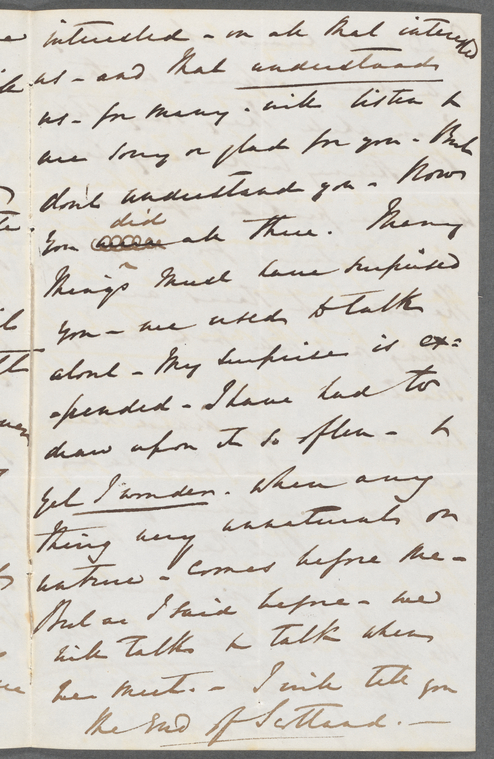 interested - in all that interested
us - and that understands
us - for many - will listen &
are sorry or glad for you - But
don't understand you - Now
you did all three. Many
things must have surprised
you - we used to talk
about - My surprise is ex=
-pended - I have had to
draw upon it so often - &
yet I wonder. When any
thing very unnatural or
untrue - comes before me -
But as I said before - we
will talk & talk when
we meet. - I will tell you
the End of Scotland. -